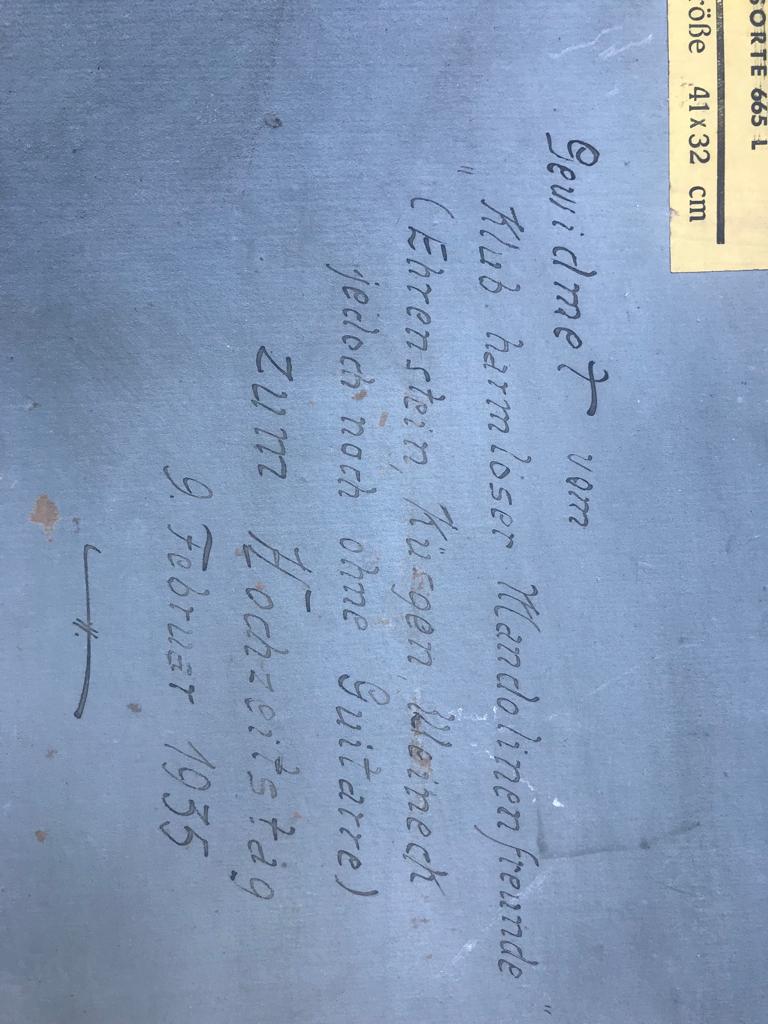 SORTE 665 L
röße 41x32 cm
Gewidmet vom
"Klub harmloser Mandolinenfreunde"
(Ehrenstein, Küsgen,
jedoch noch ohne Guitarre)
zum Hochzeitstag
9. Februar 1935